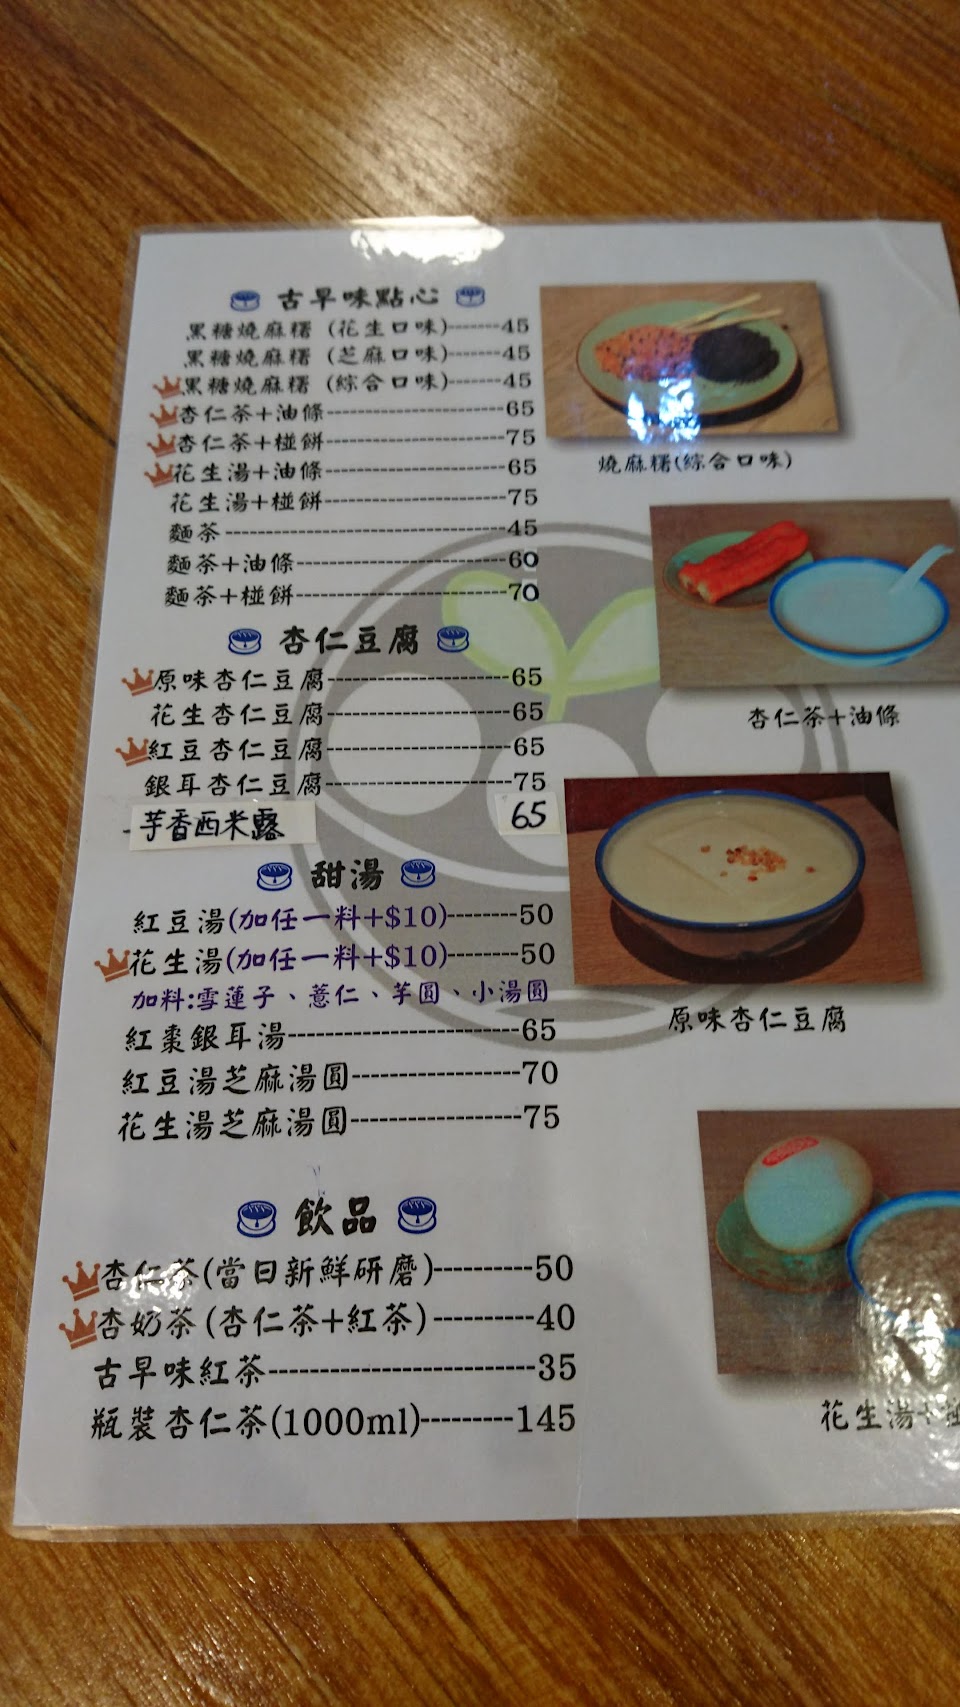 古早味點心
黑糖燒麻糬 (花生口味)-------45
黑糖燒麻糬 (芝麻口味)-------45
黑糖燒麻糬 (綜合口味)-------45
杏仁茶+油條------------------------65
杏仁茶+椪餅------------------------75
花生湯+油條------------------------65
花生湯+椪餅------------------------75
麵茶------------------------------------45
麵茶+油條---------------------------60
麵茶+椪餅---------------------------70
杏仁豆腐
原味杏仁豆腐-----------------------65
花生杏仁豆腐-----------------------65
紅豆杏仁豆腐-----------------------65
銀耳杏仁豆腐-----------------------75
芋香西米露 65
甜湯
紅豆湯(加任一料+$10)--------50
花生湯(加任一料+$10)--------50
加料:雪蓮子、薏仁、芋圓、小湯圓
紅棗銀耳湯--------------------------65
紅豆湯芝麻湯圓------------------70
花生湯芝麻湯圓------------------75
飲品
杏仁茶(當日新鮮研磨)----------50
杏奶茶(杏仁茶+紅茶)----------40
古早味紅茶--------------------------35
瓶裝杏仁茶(1000ml)---------145
燒麻糬(綜合口味)
杏仁茶+油條
原味杏仁豆腐
花生湯+